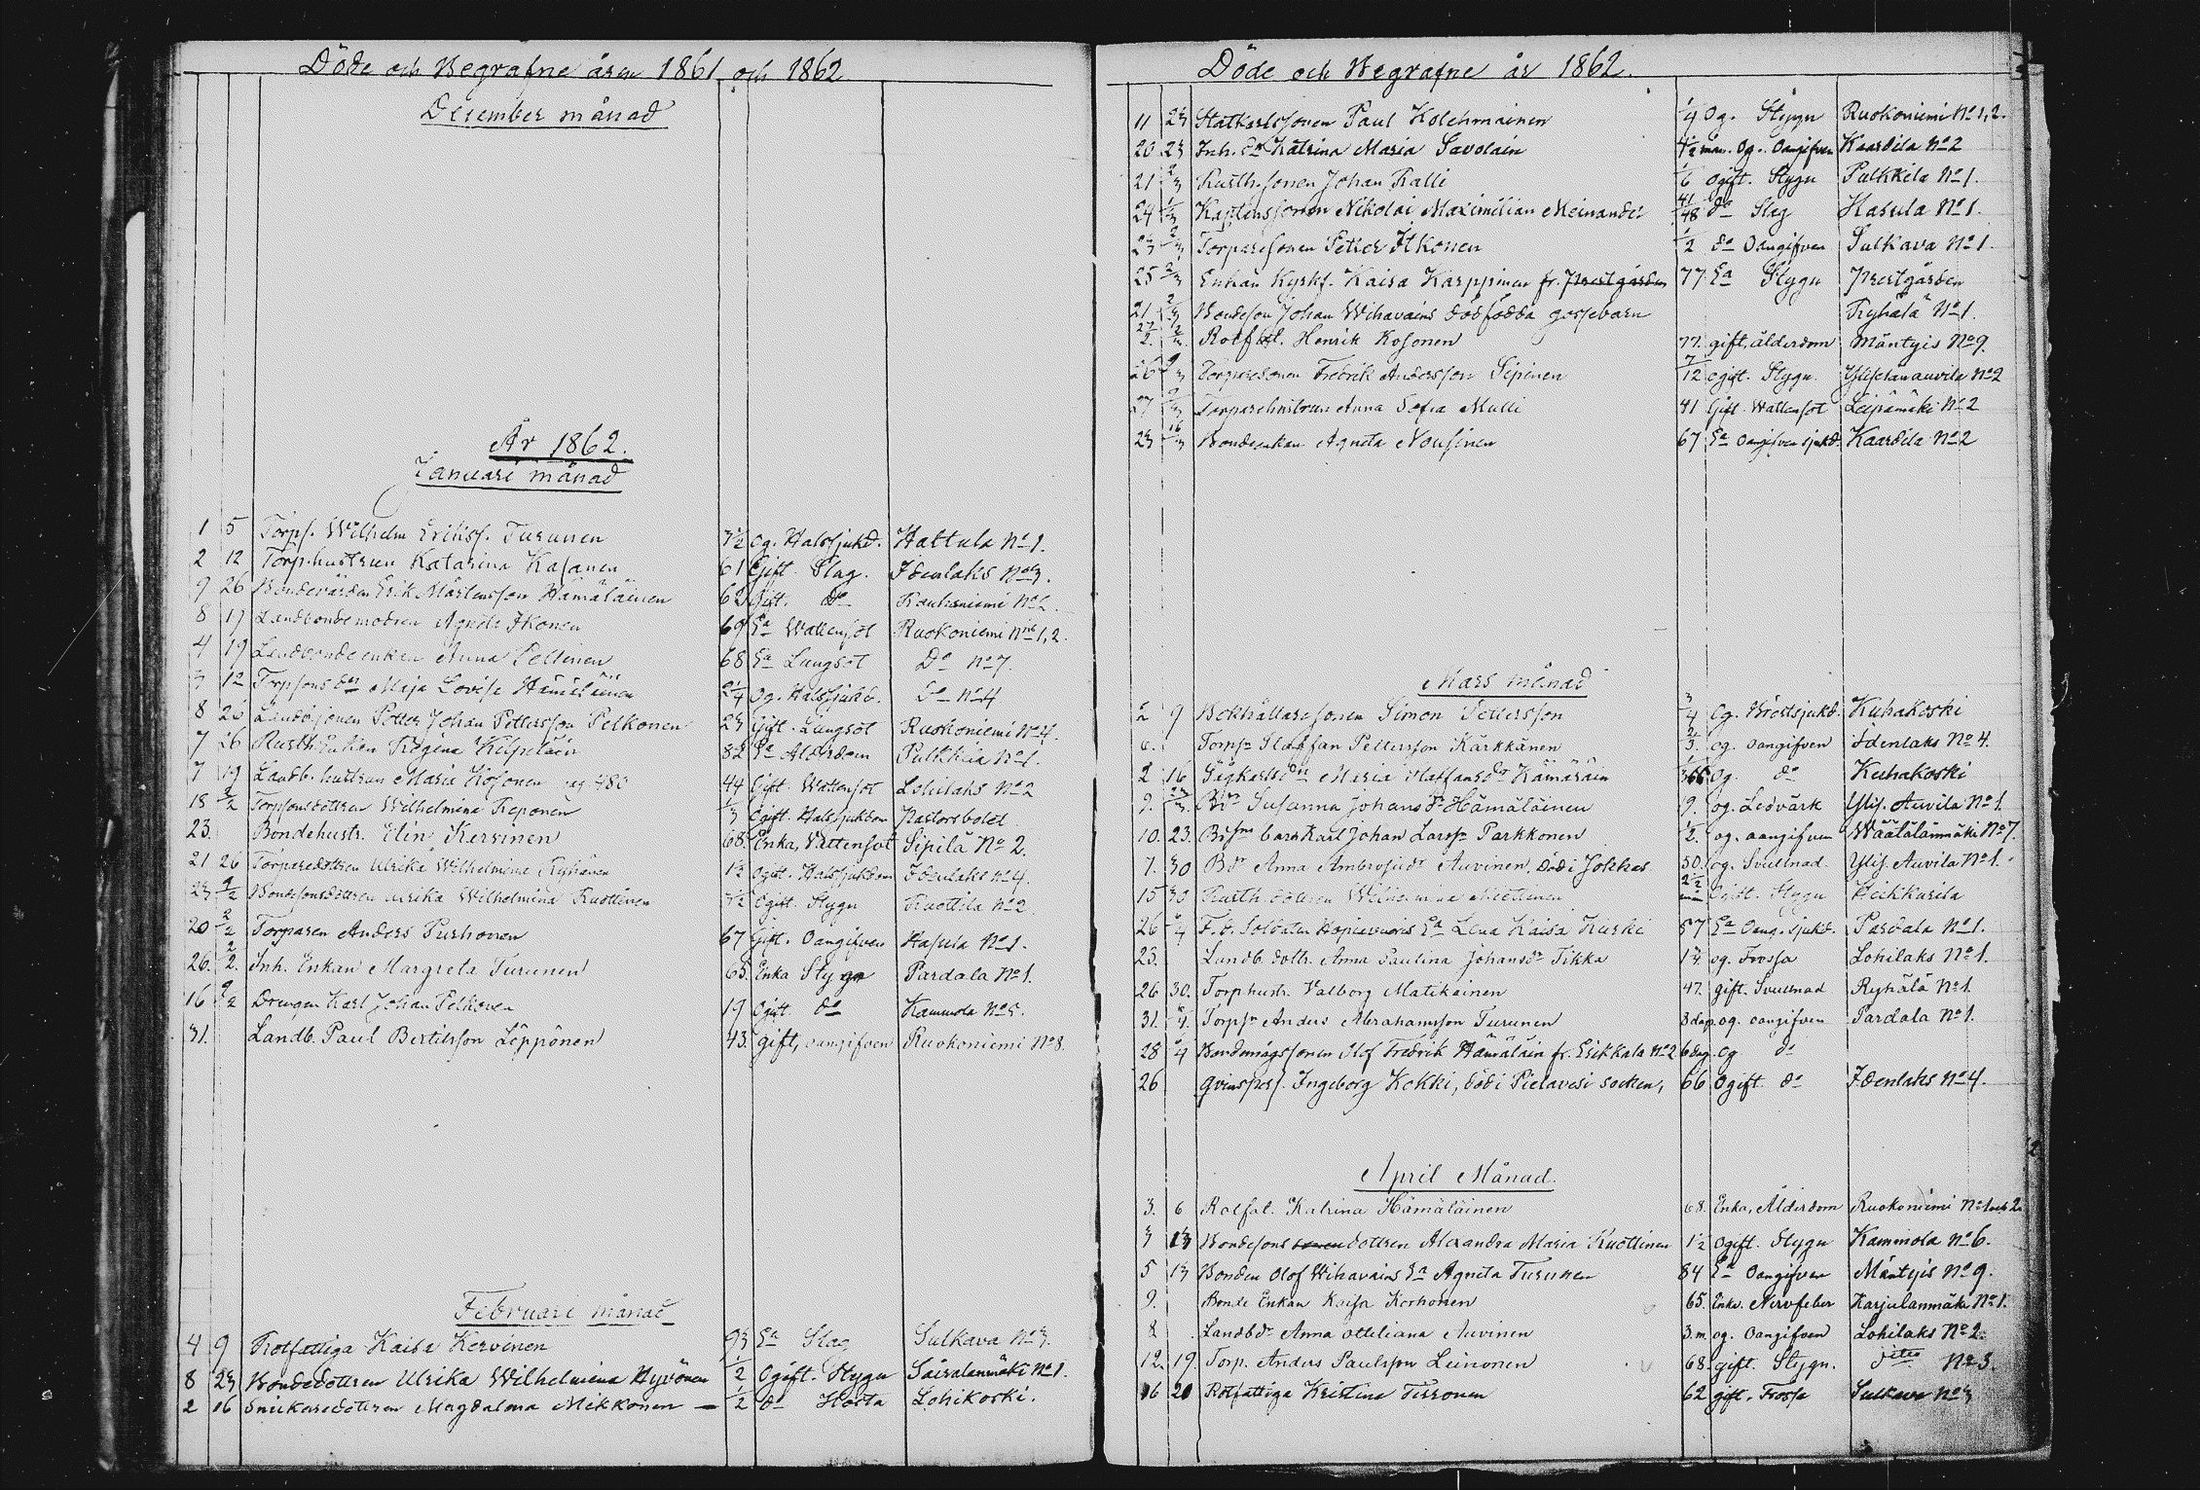 Döde och Begrafne åren 1861 och 1862
December månad
År 1862.
Januari månad
1 5 Torps. Wilhelm Erikss. Turunen 3½ Og. Halssjukd. Hattula No 1.
2 12 Torp.hustrun Katarina Kasanen 61 Gift. Slag. Idenlaks No 3.
9 26 Bondevärden Erik Mårtensson Hämäläinen 62 Gift. do Rauhaniemi No 2.
8 19 Landbondemodren Agneta Ikonen 69 Ea Wattensot Ruokoniemi No 1,2.
4 19 Landbondeenkan Anna Peltinen 68 Ea Lungsot Do No 7.
3 12 Trpsons dr Maja Lovisa Hämäläinen 2¼ Og. Halssjukd. Do No 4
8 26 Landb.sonen Petter Johan Pettersson Pelkonen 23 Gift. Lungsot Ruokoniemi No 4.
7 26 Rusth. Enkan Regina Kilpeläin 82 Ea Ålderdom Pulkkila No 1.
7 19 Landb. hustrun Maria Kosonen pag 480 44 Gift. Wattensot Lohilaks No 2
18 2/2 Torpsonsdottren Wilhelmina Reponen 1/3 Ogift. Halssjukdom Pastorsbolet
23. Bondehustr. Elin Kervinen 68. Enka, Vattensot Sipilä No 2.
21 26 Torparedottren Ulrika Wilhelmina Ryhänen 1½ Ogift. Halssjukdom Idenlaks No 4.
23 2/2 Bondesonsdottren Ulrika Wilhelmina Ruottinen 3½ Ogift. Stygn Ruottila No 2
20 2/2 Torparen Anders Purhonen 67 Gift. Oangifven Hasula No 1.
26. 2/2. Inh. Enkan Margreta Turunen 65. Enka Stygn Pardala No 1.
16 9/2 Drengen Karl Johan Pelkonen 19 Ogift. do Kammola No 5.
31. Landb. Paul Bertilsson Löppönen 43. gift, oangifven Ruokoniemi No 8.
Februari månad
4 9 Rotfattiga Kaisa Kervinen 93 Ea Slag Sulkava No 3.
8 23 Bondedottren Ulrika Wilhelmina Hyvönen ½ Ogift. Stygn Säiralanmäki No 1.
2 16 Snickaredottren Magdalena Mikkonen ½ do Hosta Lohikoski.
Döde och Begrafne år 1862.
11 23 Statkarlssonen Paul Kolehmainen ¼ Og. Stygn Ruokoniemi No 1,2.
20 23 Inh. dr Katrina Maria Savolain 4½ mån. Og. Oangifven Kaartila No 2
21 2/3 Rusth.sonen Johan Ralli 1/6 Ogift. Stygn Pulkkila No 1.
24 Kaptenssonen Nikolai Maximilian Meinander 41/48 do Slag Hasula No 1.
Torparesonen Petter Itkonen ½ do Oangifven Sulkava No 1.
25 2/3 Enkan Kyrkf. Kaisa Karppinen fr. Prestgården 77. Ea Stygn Prestgården
21 2/3 Bondeson Johan Wihavains dödfödda gossebarn Ryhälä No 1.
27/2. 2/3. Rotfat. Henrik Kosonen 77. gift, ålderdom Mäntyis No 9.
26 9/3 Torparesonen Fredrik Andersson Sipinen 7/12 Ogift. Stygn Ylisenauvila No 2
27 9/3 Torparehustrun Anna Sofia Malli 41 Gift. Wattensot Leipämäki No 2
23 16/3 Bondeenkan Agneta Nousinen 67 Ea Oangifven sjukd. Kaartila No 2
Mars månad
2 9 Bokhållaresonen Simon Pettersson ¾ Og. Bröstsjukd. Kuhakoski
6. Torpsn Staffan Pettersson Kärkkänen 2/3. og. oangifven Idenlaks No 4.
2 16 Maria Staffansdr Kämäräin Og. do Kuhakoski
9. 23/3. Bdr Susanna Johansdr Hämäläinen 9. og. Ledvärk Ylis. Auvila No 1.
10. 23. barn Karl Johan Larssn Parkkonen ½. og. oangifven Wäätälänmäki No 7.
7. 30 Bdr Anna Ambrosiidr Auvinen, död i Jokkas 50. og. Svullnad. Ylis. Auvila No 1.
15 30 Rusth. dottren Wilhelmina Miettinen 2½ mån Ogift. Stygn Heikkurila
26 6/4 F.d. Soldaten Hopiavuoris Ea Lena Kaisa Kurki 57 Ea Oang. sjukd. Pardala No 1.
23. Landb. dottr. Anna Paulina Johansdr Tikka 1¾ og. Frossa Lohilaks No 1.
26 30. Torphustr. Valborg Matikainen 47. gift. Svullnad Ryhälä No 1.
31. 6/4. Torpsn Anders Abrahamsson Turunen 8 dag. og. oangifven Pardala No 1.
28 6/4 Bondemågssonen Olof Fredrik Hämäläin fr. Erikkala No 2 6 dag. Og do
26 qvinspers. Ingeborg Kokki, död i Pielavesi socken, 66 Ogift. do Idenlaks No 4.
April Månad.
3. 6 Rotfat. Katrina Hämäläinen 68. Enka, Ålderdom Ruokoniemi No 1 och 2.
3 13 Bondesons dottren Alexandra Maria Ruottinen 1½ Ogift. Stygn Kammola No 6.
5 13 Bonden Olof Wihavains Ea Agneta Turunen 84 Ea Oangifven Mäntyis No 9.
9. Bonde Enkan Kaisa Korhonen 65. Enka. Nervfeber Karjulanmäki No 1.
8 Landbdr Anna Ottiliana Auvinen 3.m. og. Oangifven Lohilaks No 2.
12. 19. Torp. Anders Paulsson Leinonen 68. gift. Stygn. dito No 3.
16 20 Rotfattiga Kristina Tirronen 62 gift. Frossa Sulkava No 3